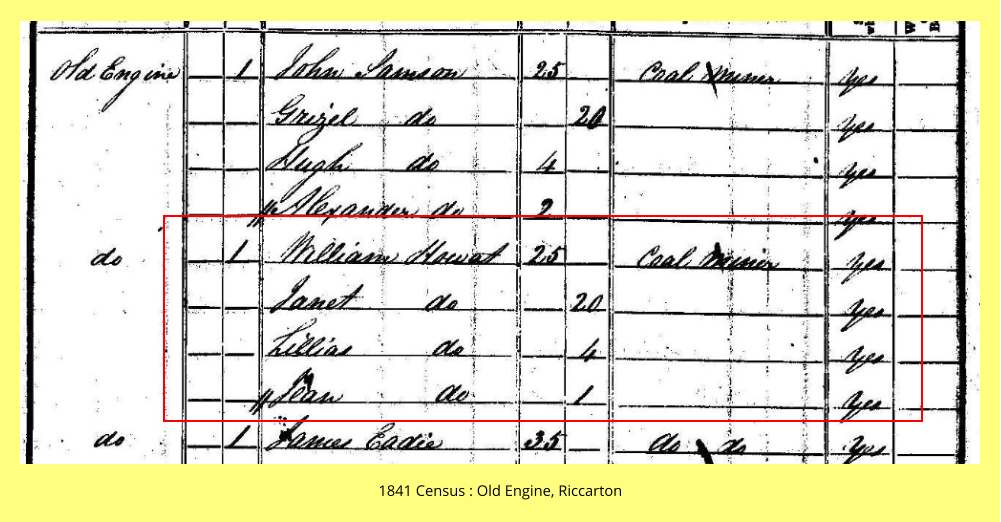 Old Engine 1 John Samson 25 Coal Miner Yes
Grizel do 20 Yes
Hugh do 4 Yes
Alexander do 2 Yes
do 1 William Howat 25 Coal Miner Yes
Janet do 20 Yes
Lillias do 4 Yes
Jean do 1 Yes
do 1 James Eadie 35 do do Yes
1841 Census : Old Engine, Riccarton